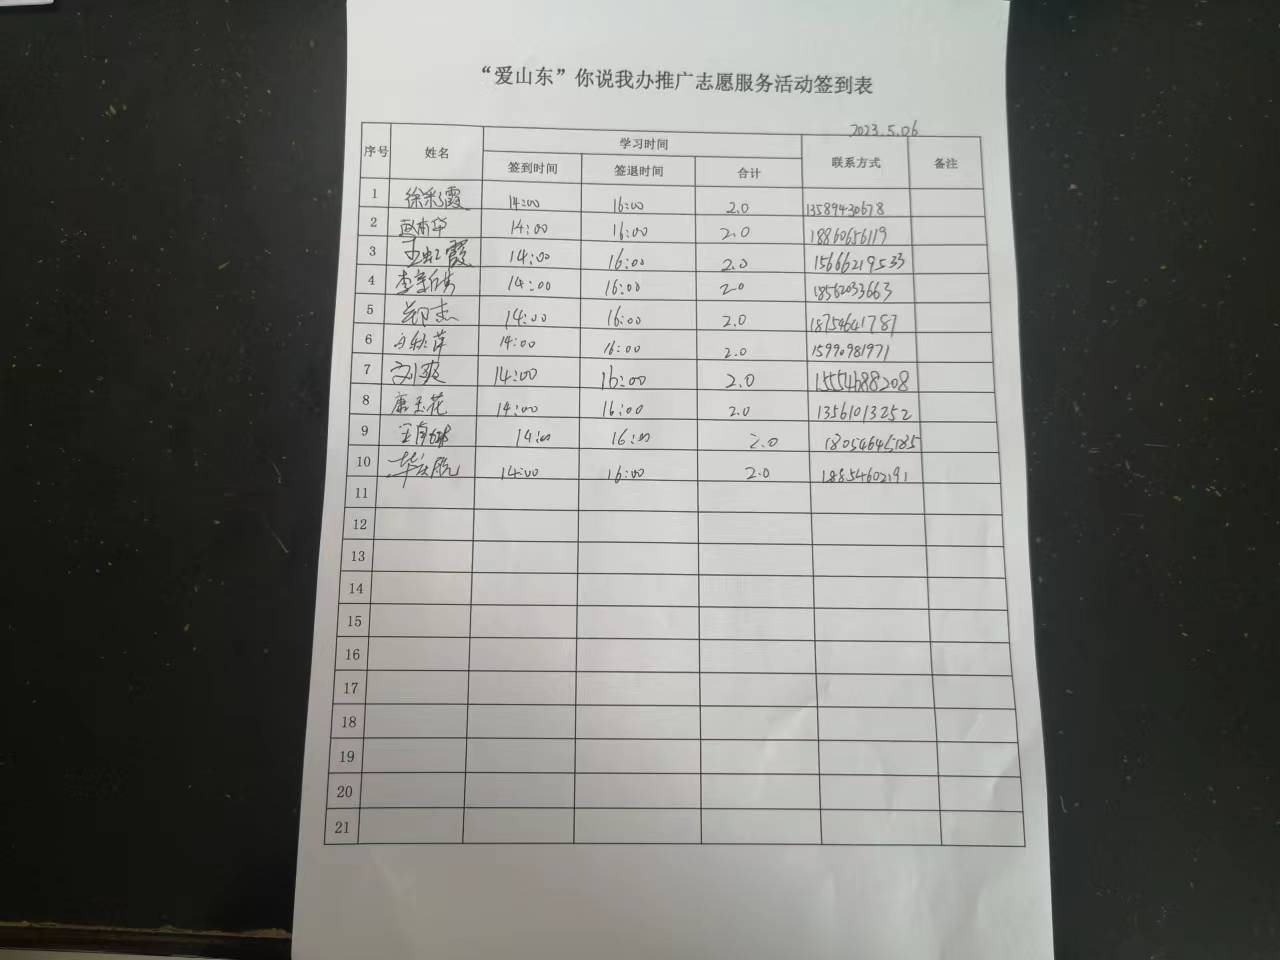 “爱山东”你说我办推广志愿服务活动签到表
2023.5.06
序号 姓名 学习时间 联系方式 备注
签到时间 签退时间 合计
1 徐彩霞 14:00 16:00 2.0 13589430678
2 14:00 16:00 2.0 18860656119
3 王虹霞 14:00 16:00 2.0 15666219533
4 14:00 16:00 2.0 18562033663
5 郑志 14:00 16:00 2.0 18754641787
6 14:00 16:00 2.0 15990981971
7 刘爽 14:00 16:00 2.0 15554688208
8 康玉花 14:00 16:00 2.0 13561013252
9 14:00 16:00 2.0 18054645185
10 14:00 16:00 2.0 18854602191
11
12
13
14
15
16
17
18
19
20
21